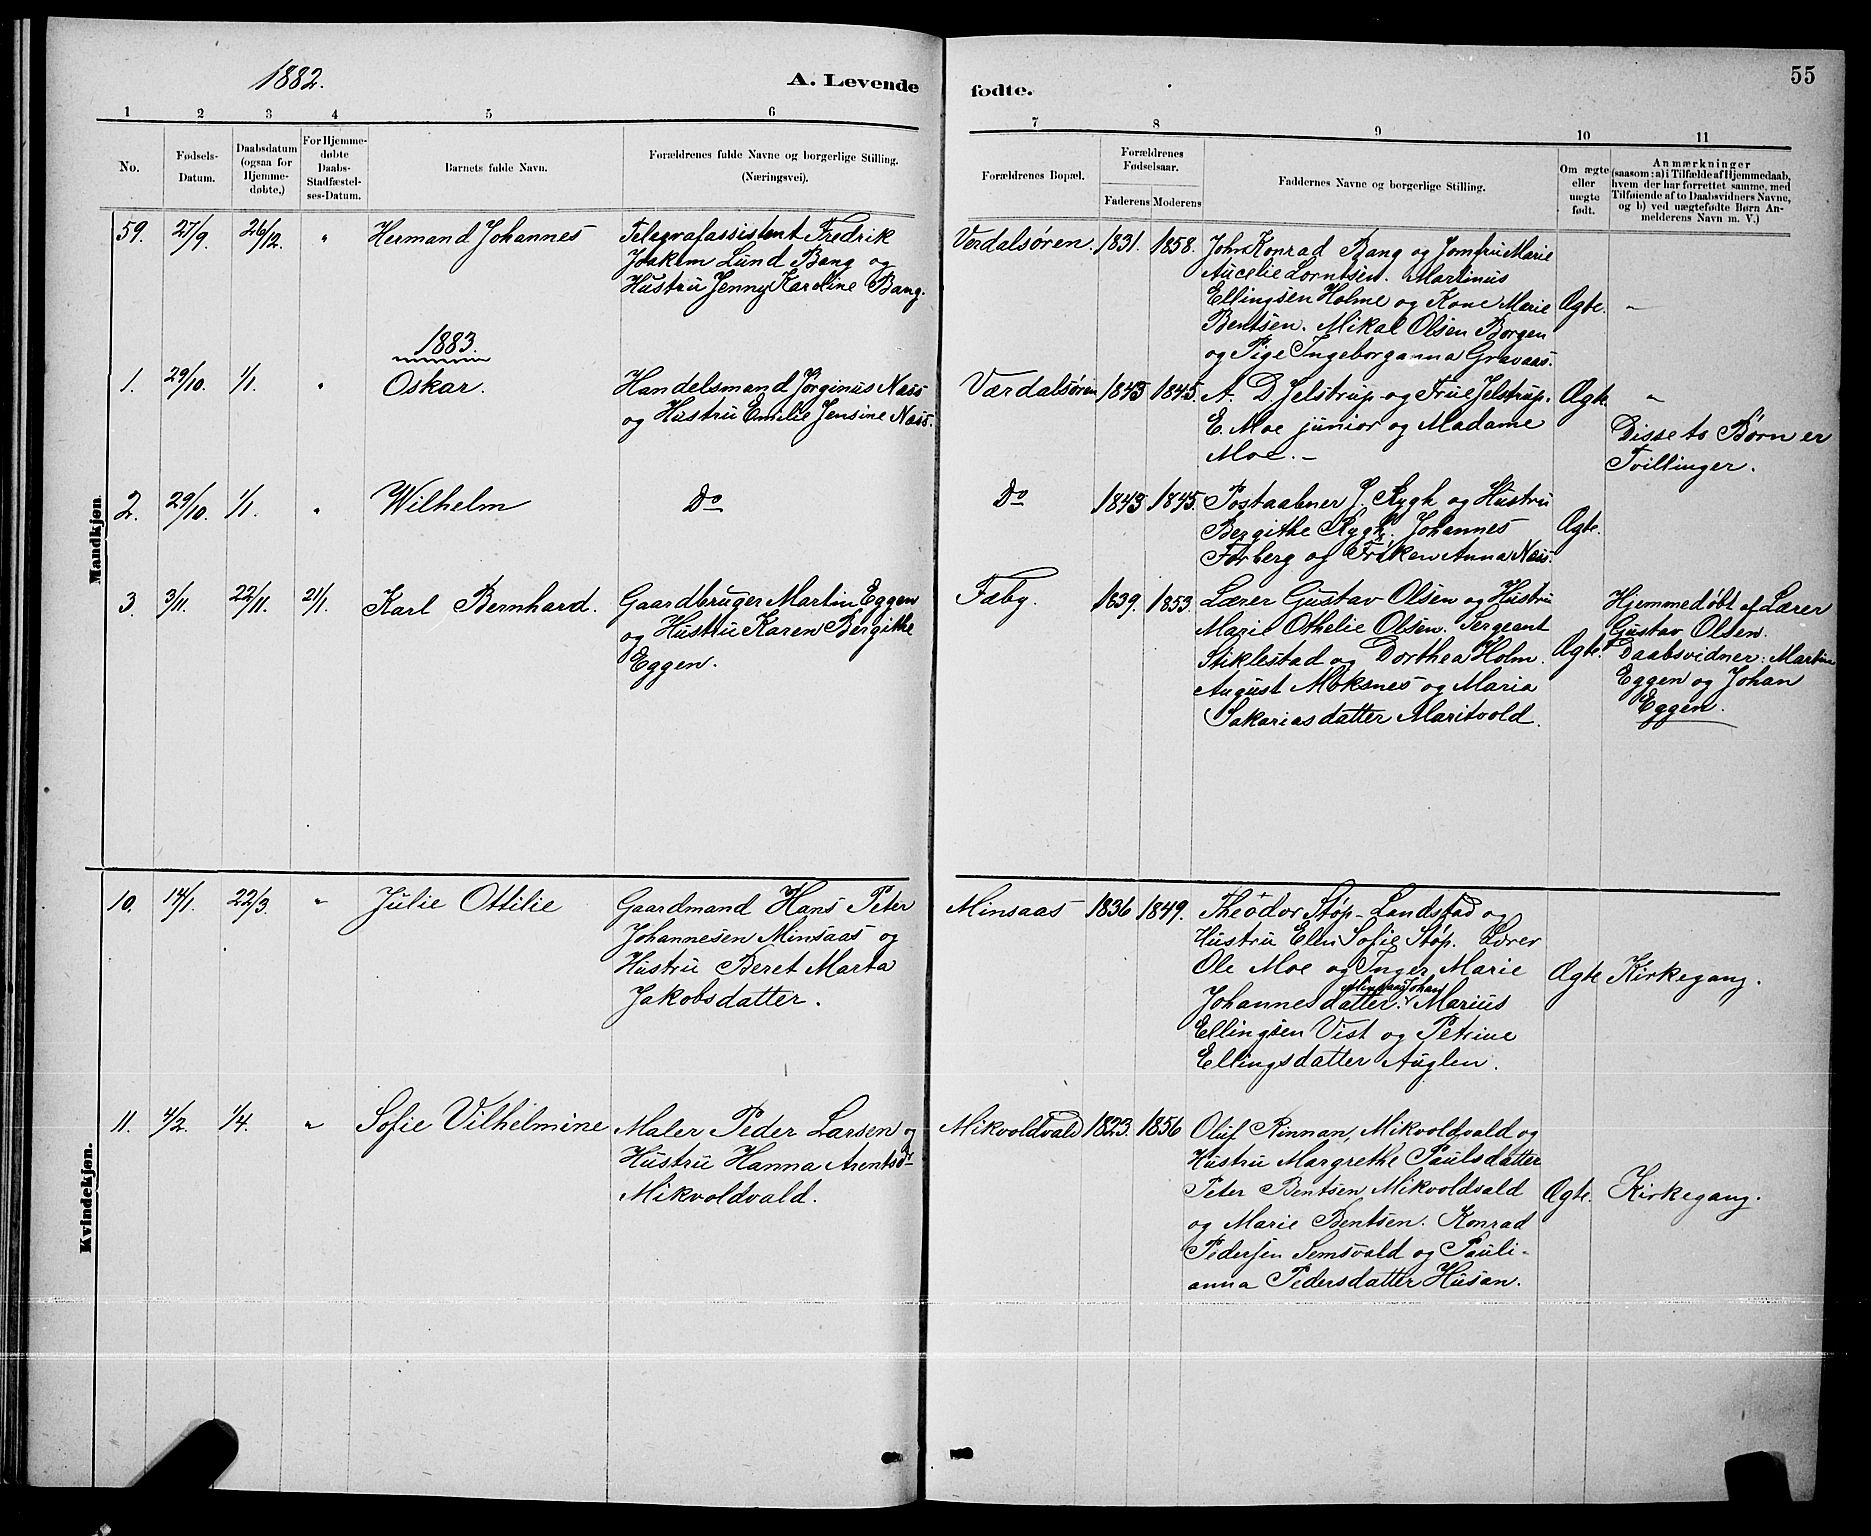 1882.
A. Levende
fødte.
55
1 2 3 4 5 6 7 8 9 10 11
No.
Fødsels-
Datum.
Daabsdatum
(ogsaa for
Hjemme-
døbte.)
For Hjemme-
døbte
Daabs-
Stadfæstel-
ses-Datum.
Barnets fulde Navn.
Forældrenes fulde Navne og borgerlige Stilling.
(Næringsvei).
Forældrenes Bopæl.
Forældrenes
Fødselsaar.
Faderens Moderens
Faddernes Navne og borgerlige Stilling.
Om ægte
eller
uægte
født.
Anmærkninger
(saasom: a) i Tilfælde af Hjemmedaab,
hvem der har forrettet samme, med
Tilføiende af to Daabsvidners Navne,
og b) ved uægtefødte Børn An-
melderens Navn m. V.)
Mandkjøn.
59. 27/9. 26/12. " Hermand Johannes
Telegrafassistent Fredrik
Joakim Lund Bang og
Hustru Jenny Karoline Bang.
Verdalsøren. 1831. 1858.
John Konrad Bang og Jomfru Marie
Lorntsen. Martinus
Ellingsen Holme og Kone Marie
Bentsen. Mikal Olsen Borgen
og Pige Ingeborganna Gravaas.
Ægte. "
1883.
1. 29/10. 1/1. " Oskar.
Handelsmand Jørginus Næss
og Hustru Emilie Jensine Næss.
Værdalsøren 1843 1845.
A. D. Jelstrup og Frue Jelstrup.
E. Moe junior og Madame
Moe. -
Ægte. "
Disse to Børn er
Tvillinger.
2. 29/10. 1/1. " Wilhelm
Do
Do 1843 1845.
Postaabner J. Rygh og Hustru
Bergithe Rygh. Johannes
Forberg og Frøken Anna Næss.
Ægte.
3. 3/11. 22/11. 21/1. Karl Bernhard.
Gaardbruger Martin Eggen
og Hustru Karen Bergithe
Eggen.
Fæby. 1839. 1853.
Lærer Gustav Olsen og Hustru
Marie Othelie Olsen. Sergeant
Stiklestad og Dorthea Holm.
August Moksnes og Maria
Sakariasdatter Maritvold.
Ægte.
Hjemmedøbt af Lærer
Gustav Olsen.
Daabsvidner: Martin
Eggen og Johan
Eggen.
Kvindekjøn.
10. 14/1. 22/3. " Julie Ottilie
Gaardmand Hans Peter
Johannesen Minsaas og
Hustru Beret Marta
Jakobsdatter.
Minsaas 1836 1849.
Theodor Støp-Landstad og
Hustru Elen Sofie Støp. Lærer
Ole Moe og Inger Marie
Minsaas Johan
Johannesdatter. Marius
Ellingsen Vist og Petrine
Ellingsdatter Auglen.
Ægte Kirkegang.
11. 4/2. 1/4. " Sofie Vilhelmine
Maler Peder Larsen og
Hustru Hanna Arentsdr
Mikvoldvald.
Mikvoldvald 1823. 1856
Oluf Rinnan, Mikvoldvald og
Hustru Margrethe Paulsdatter
Peter Bentsen Mikvoldvald
og Marie Bentsen. Konrad
Pedersen Semsvald og Pauli-
anna Pedersdatter Husan.
Ægte. Kirkegang.